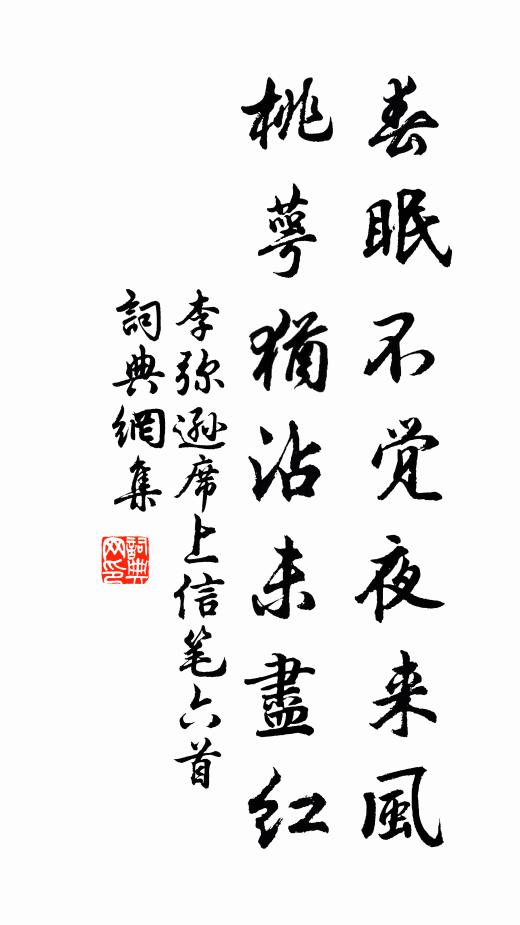 春眠不觉夜来風
桃萼猶沾未盡红
李弥遜席上信笔六首
詞典網集
詞典网印